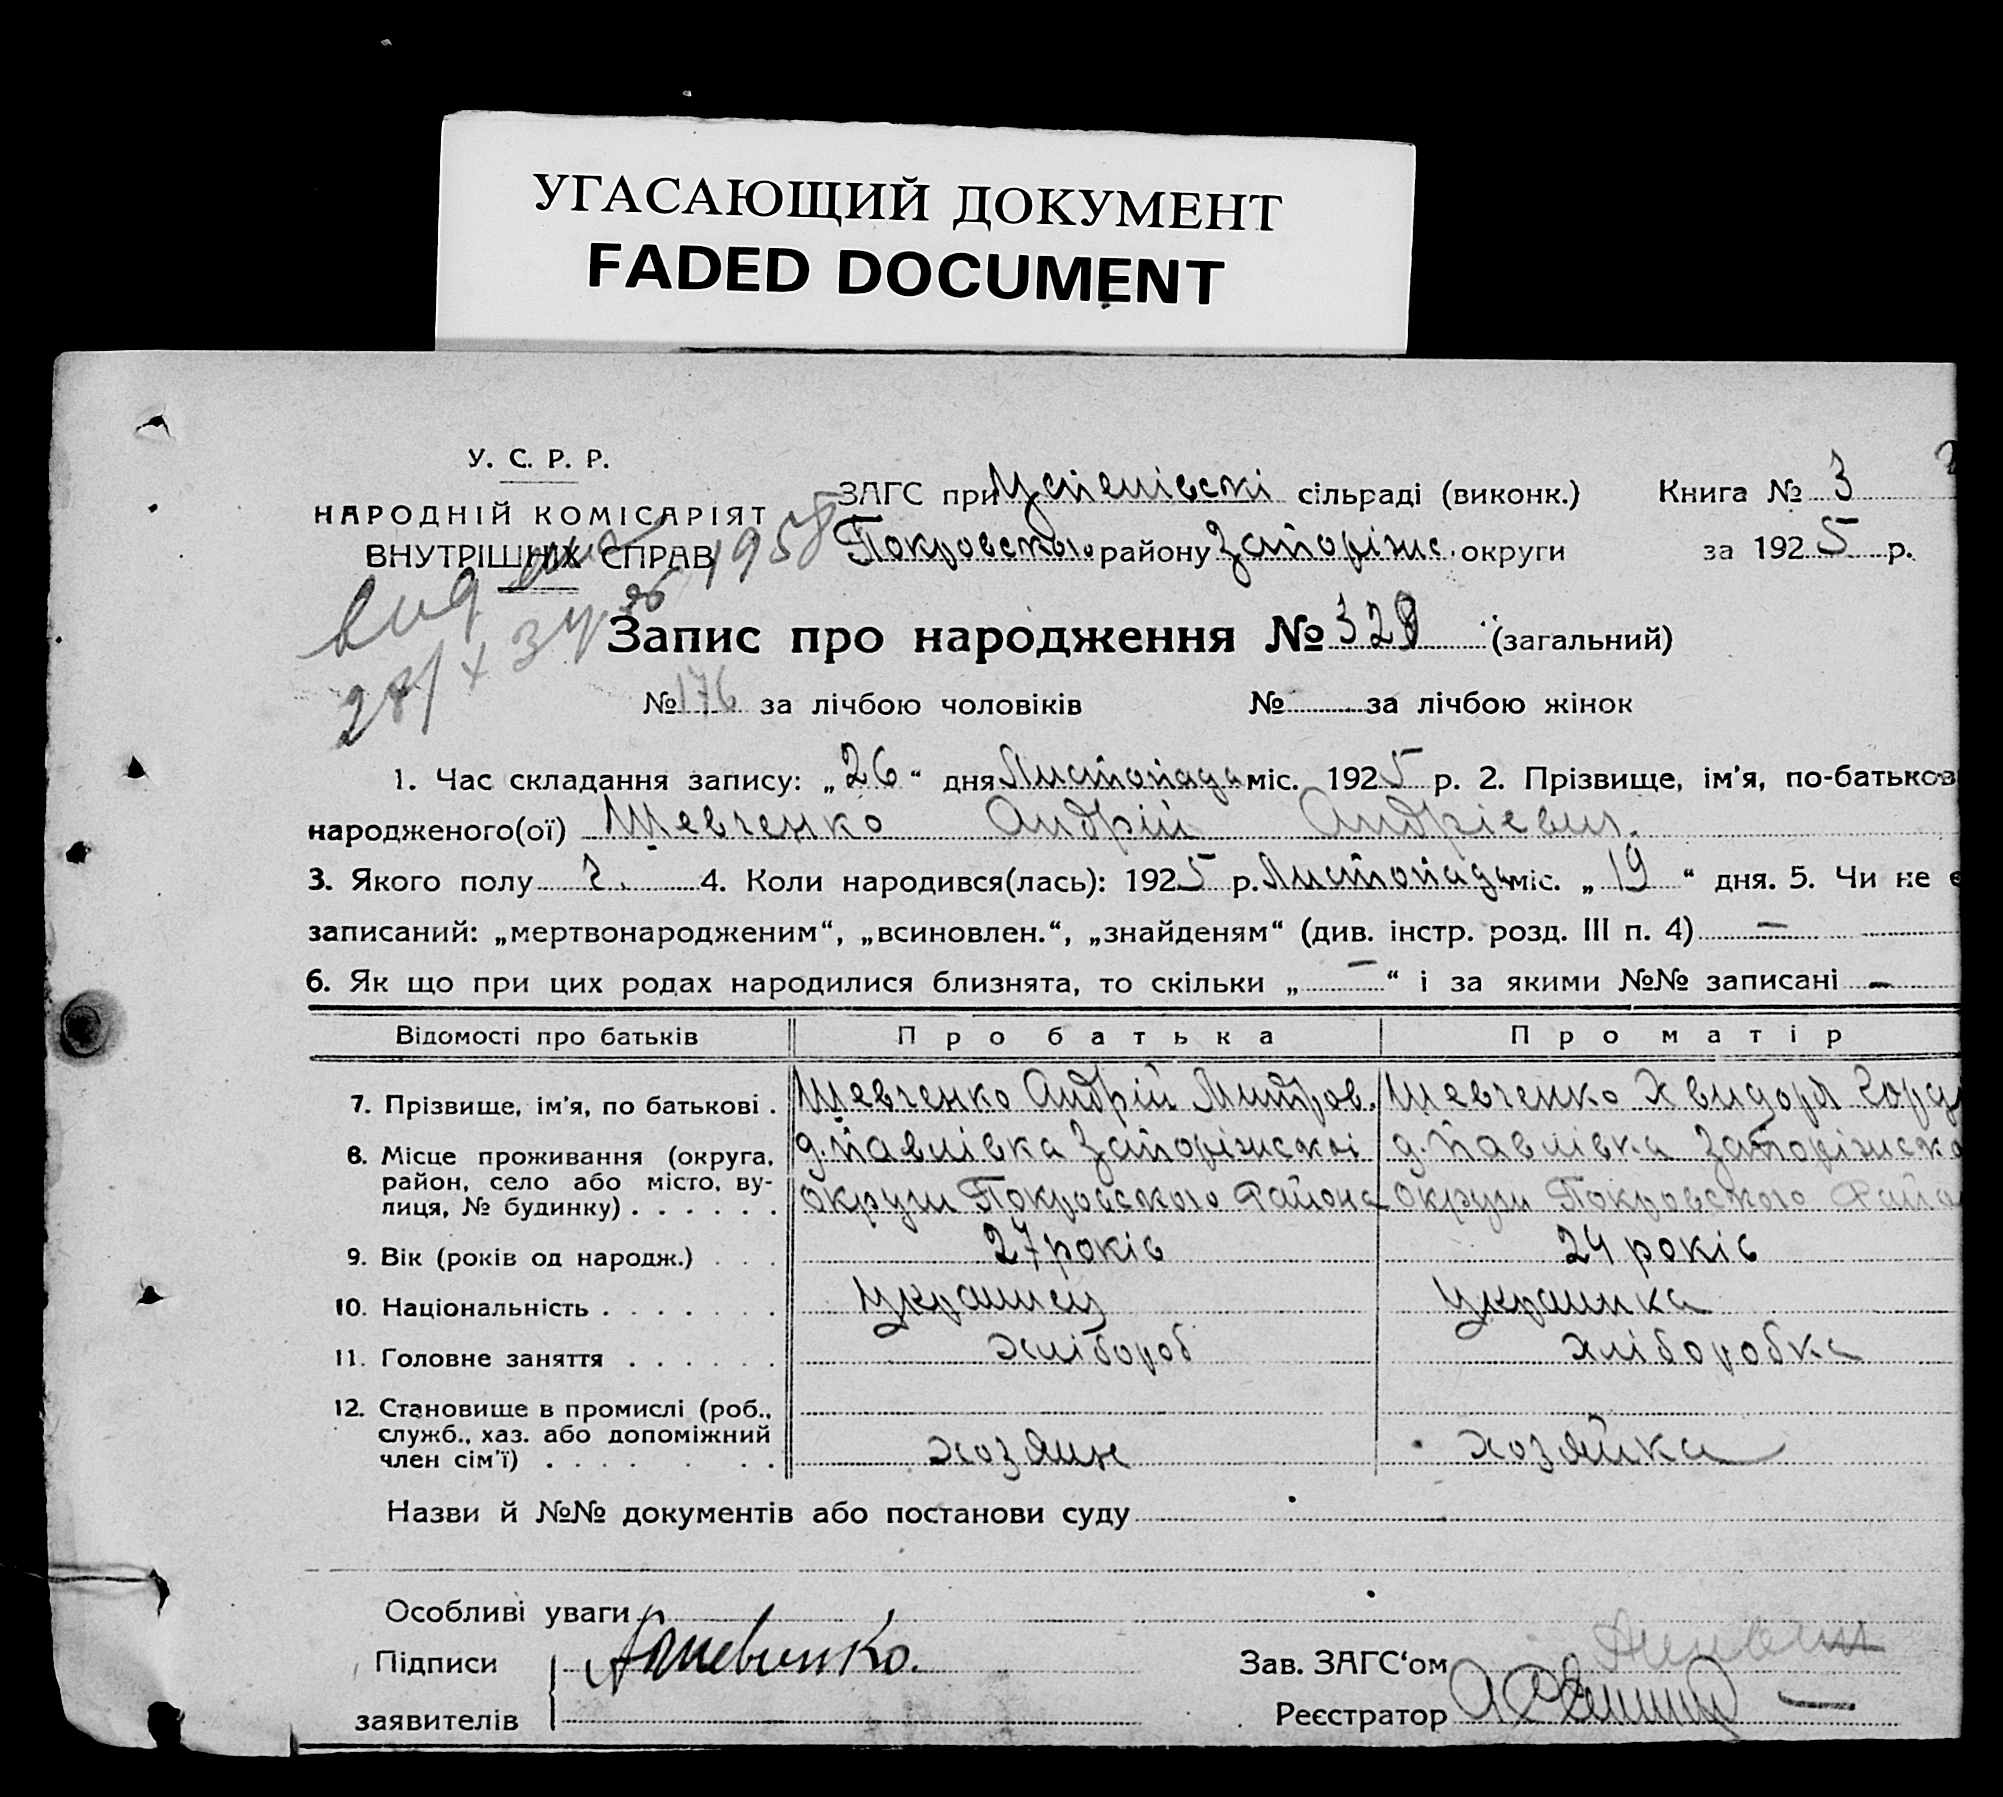 УГАСАЮЩИЙ ДОКУМЕНТ
FADED DOCUMENT
У. С. Р. Р.
НАРОДНІЙ КОМІСАРІЯТ
ВНУТРІШНІХ СПРАВ
ЗАГС при Успенівскі сільраді (виконк.) Книга № 3
Покровського району Запоріжс. округи за 1925 р.
Запис про народження № 328 (загальний)
№ 176 за лічбою чоловіків № за лічбою жінок
1. Час складання запису: „26“ дня Листопада міс. 1925 р. 2. Прізвище, ім'я, по-батьков
народженого(ої) Шевченко Андрій Андрієвич.
3. Якого полу ч. 4. Коли народився(лась): 1925 р. Листопада міс. „19“ дня. 5. Чи не є
записаний: „мертвонародженим“, „всиновлен.“, „знайденям“ (див. інстр. розд. III п. 4) —
6. Як що при цих родах народилися близнята, то скільки „—“ і за якими №№ записані —
Відомості про батьків Про батька Про матір
7. Прізвище, ім'я, по батькові . Шевченко Андрій Митров. Шевченко Хвидора Горд
8. Місце проживання (округа, д. Павлівка Запоріжскоі д. Павлівка Запоріжско
район, село або місто, ву-
лиця, № будинку) . . . . . . округи Покровського Района округи Покровського Райо
9. Вік (років од народж.) . . . 27 років 24 років
10. Національність . . . . . . . Украинец Украинка
11. Головне заняття . . . . . . хлібороб хліборобка
12. Становище в промислі (роб.,
служб., хаз. або допоміжний
член сім'ї) . . . . . . хозяин хозяйка
Назви й №№ документів або постанови суду
Особливі уваги
Підписи
заявителів
Зав. ЗАГС‘ом
Реєстратор